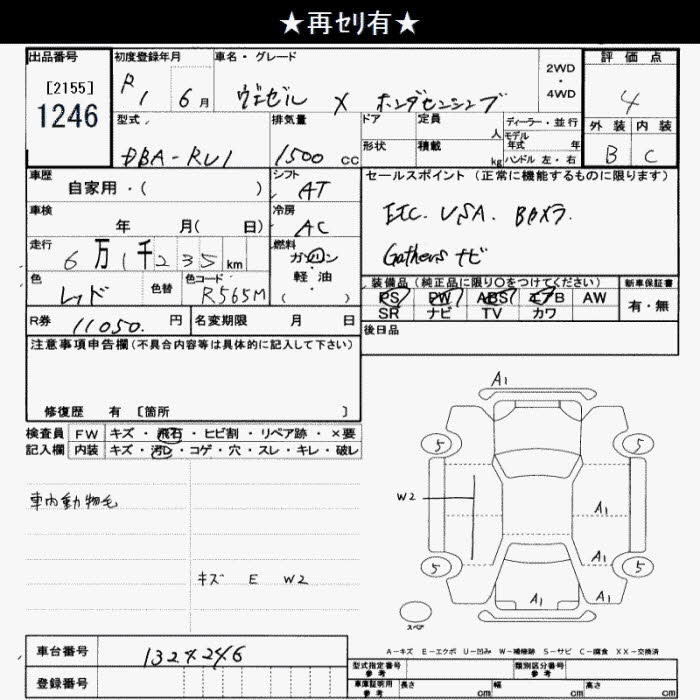 ★再ｾﾘ有★
出品番号
[2155]
1246
初度登録年月
R1 6月
車名・グレード
ヴェゼル X ホンダセンシング
2WD
・
4WD
評価点
4
外装 内装
B C
型式
DBA-RU1
排気量
1500 cc
ドア
形状
定員
人
積載
kg
ディーラー・並行
モデル
年式 年
ハンドル 左・右
車歴
自家用・( )
シフト
AT
セールスポイント (正常に機能するものに限ります)
ETC. USA. Bカメラ.
Gathers ナビ
車検
年 月( 日)
冷房
AC
走行
6万1千235km
燃料
ガソリン
軽油
( )
色
レッド
色替
色コード
R565M
装備品 (純正品に限り○をつけてください)
PS PW ABS エアB AW
SR ナビ TV カワ
新車保証書
有・無
R券 11050. 円
名変期限 月 日
後日品
注意事項申告欄 (不具合内容等は具体的に記入して下さい)
修復歴 有 [箇所 ]
検査員 FW キズ・飛石・ヒビ割・リペア跡・×要
記入欄 内装 キズ・汚レ・コゲ・穴・スレ・キレ・破レ
車内動物毛
キズ E W2
A1
5 5
W2
A1
A1
5 5
A1 A1
スペア
A-キズ E-エクボ U-凹み W-補修跡 S-サビ C-腐食 XX-交換済
車台番号 1324246
登録番号
型式指定番号
参考
類別区分番号
参考
車庫証明用
参考
長さ cm 幅 cm 高さ cm